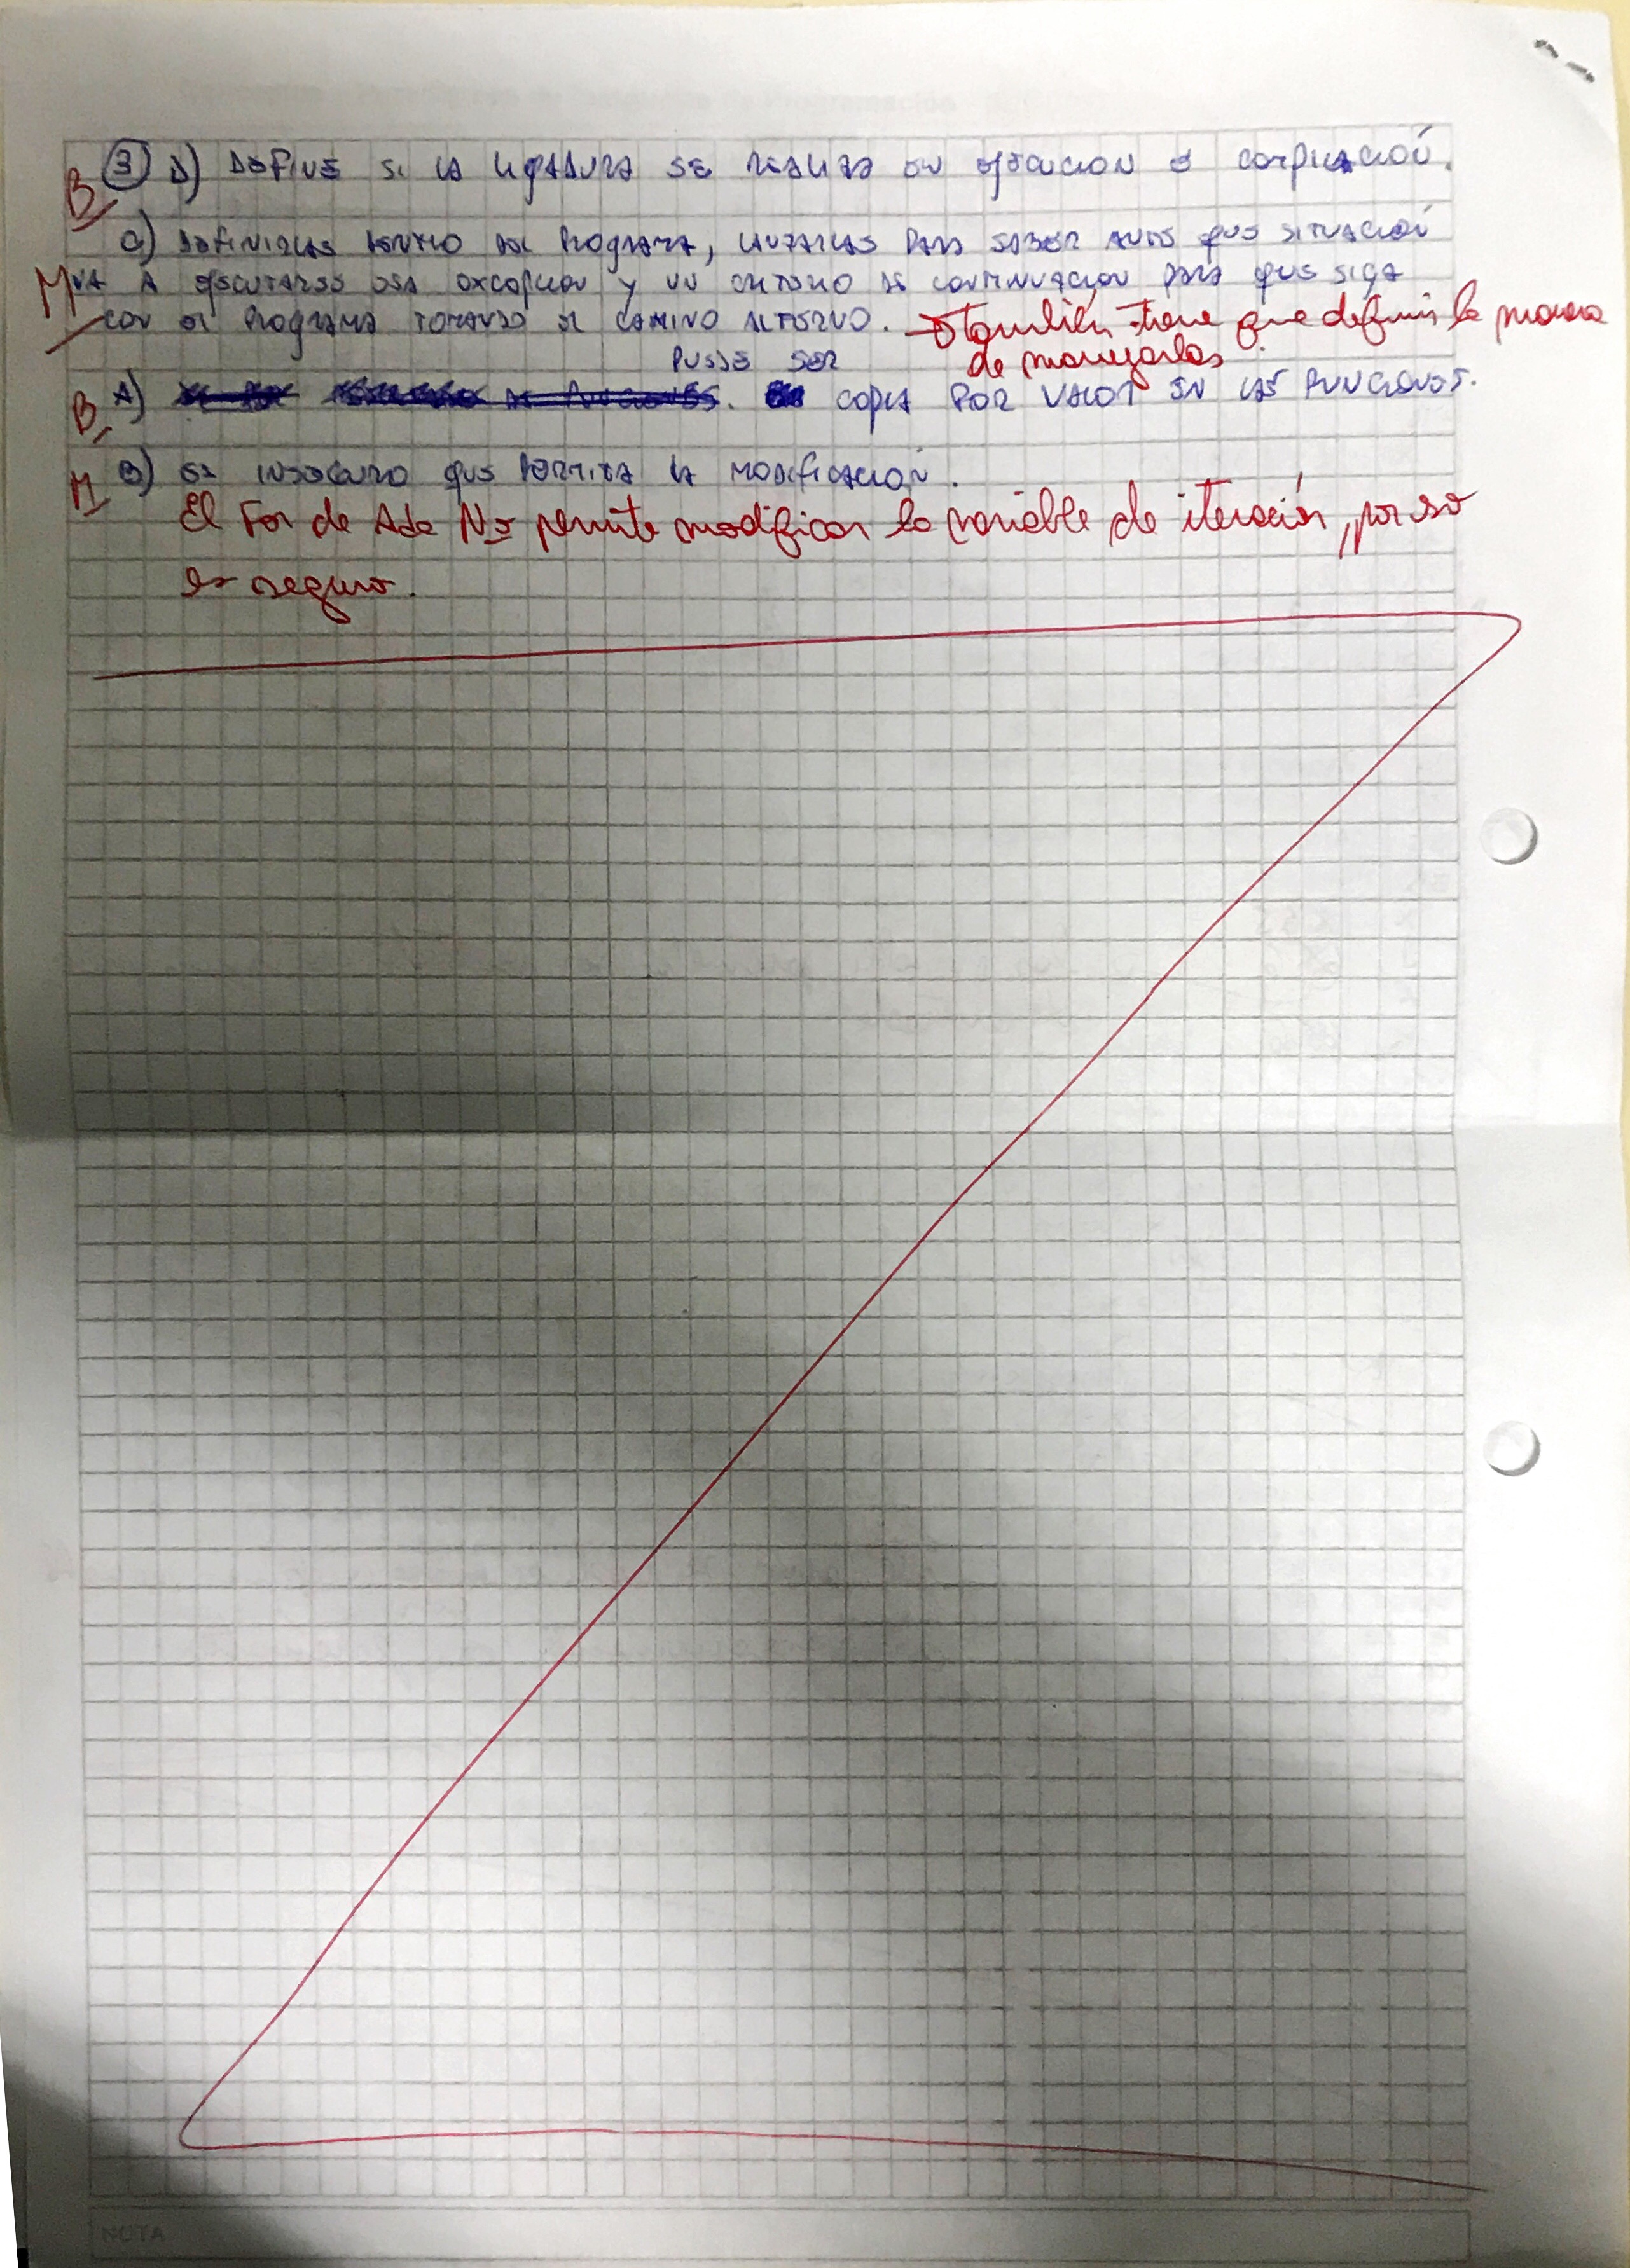 B ③ D) DEFINE SI LA LIGADURA SE REALIZA EN EJECUCION O COMPILACIÓN.
C) DEFINIRLAS DENTRO DEL PROGRAMA, LANZARLAS PARA SABER ANTE QUE SITUACIÓN
M VA A EJECUTARSE ESA EXCEPCION Y UN CRITERIO DE CONTINUACION PARA QUE SIGA
CON EL PROGRAMA TOMANDO EL CAMINO ALTERNO. → también tiene que definir la manera
de manejarlas
PUEDE SER
B A) COPIA POR VALOR EN LAS FUNCIONES.
M B) ES INSEGURO QUE PERMITA LA MODIFICACIÓN.
El For de Ada No permite modificar la variable de iteración, por eso
es seguro.
NOTA